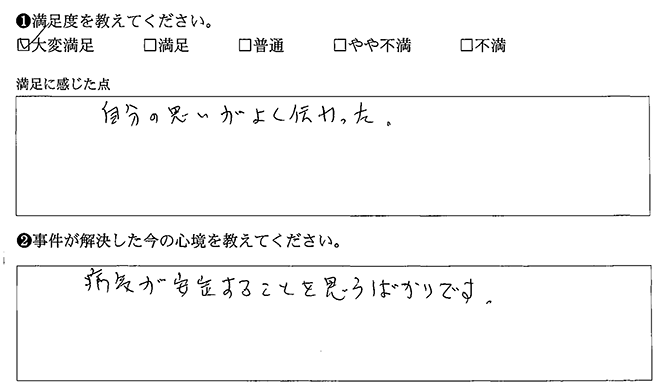 ❶満足度を教えてください。
☑大変満足 □満足 □普通 □やや不満 □不満
満足に感じた点
自分の思いがよく伝わった。
❷事件が解決した今の心境を教えてください。
病気が安定することを思うばかりです。